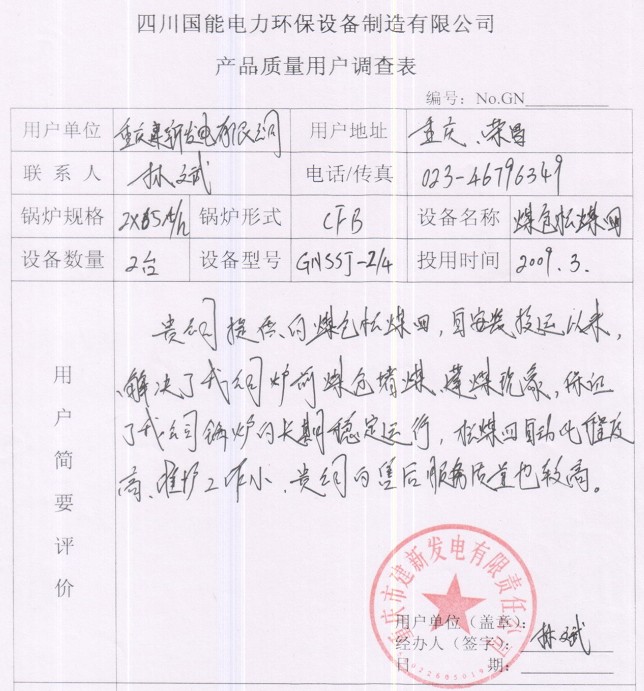 四川国能电力环保设备制造有限公司
产品质量用户调查表
编号：No.GN
用户单位 重庆建新发电有限公司 用户地址 重庆、荣昌
联系人 林文斌 电话/传真 023-46796349
锅炉规格 2X65t/h 锅炉形式 CFB 设备名称 煤仓松煤器
设备数量 2台 设备型号 GNSSJ-2/4 投用时间 2009.3.
用户简要评价
贵公司提供的煤仓松煤器，自安装投运以来，
解决了我公司炉前煤仓堵煤、蓬煤现象，保证
了我公司锅炉的长期稳定运行，松煤器自动化程度
高、维护工作小、贵公司的售后服务质量也较高。
重庆市建新发电有限责任公司
用户单位（盖章）：
经办人（签字）：林文斌
日期：